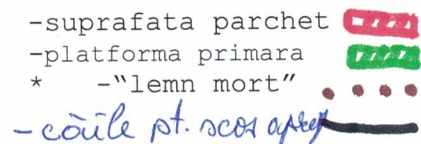 -suprafata parchet
-platforma primara
* -“lemn mort”
-căile pt. scos